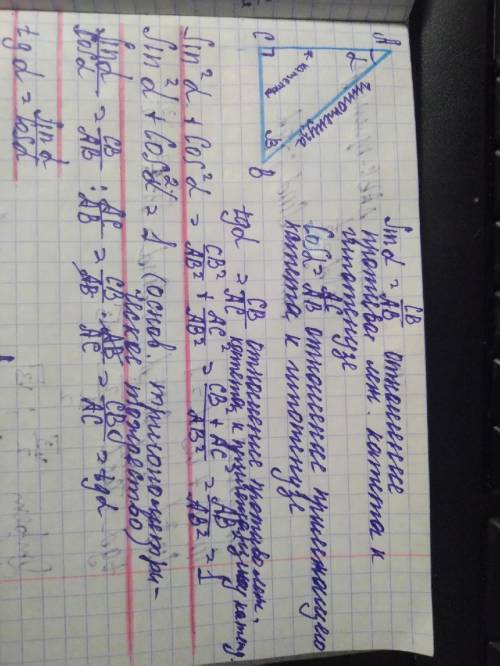 A
α
гипотенуза
катеты
C
β
B
Sin α = CB/AB отношение
противолеж. катета к
гипотенузе
Cos α = AC/AB отношение прилежащего
катета к гипотенузе
tg α = CB/AC отношение противолеж.
катета к прилежащему катету.
Sin²α + Cos²α = CB²/AB² + AC²/AB² = CB + AC/AB² = AB/AB² = 1
Sin²α + Cos²α = 1 (основ. тригонометри-
ческое тождество)
Sin α/Cos α = CB/AB : AC/AB = CB/AB · AB/AC = CB/AC = tg α
tg α = Sin α/Cos α